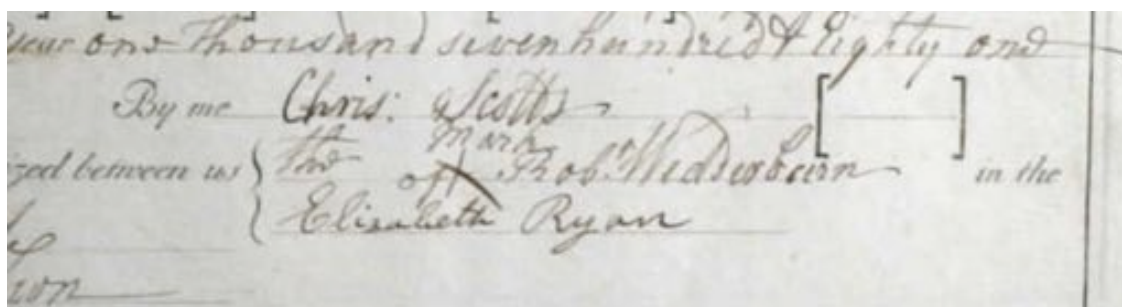 year one thousand seven hundred & Eighty one
By me Chris: Scotts
ized between us { the Mark of Rob.t Widderburn in the
Elizabeth Ryan